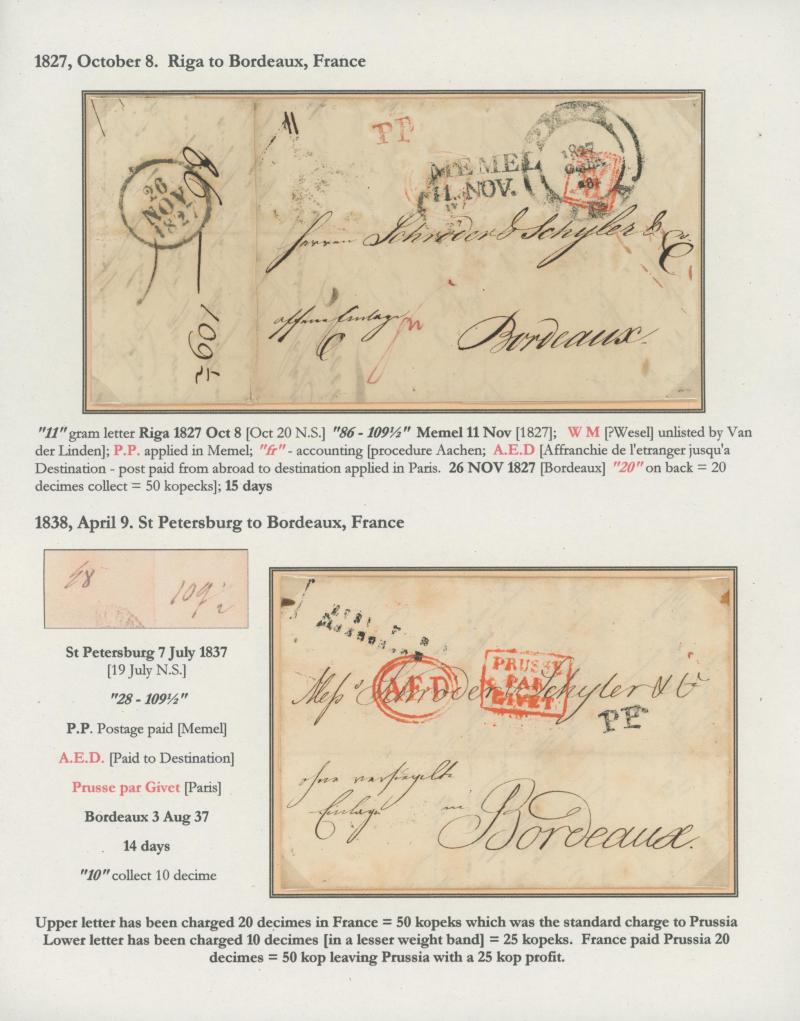 1827, October 8. Riga to Bordeaux, France
11
P.P.
MEMEL
11. NOV.
1827
26
NOV
1827
86 — 109½
Herren Schröder & Schyler & Co
offene Einlage
fr
Bordeaux.
"11" gram letter Riga 1827 Oct 8 [Oct 20 N.S.] "86 - 109½" Memel 11 Nov [1827]; W M [?Wesel] unlisted by Van
der Linden]; P.P. applied in Memel; "fr" - accounting [procedure Aachen; A.E.D [Affranchie de l'etranger jusqu'a
Destination - post paid from abroad to destination applied in Paris. 26 NOV 1827 [Bordeaux] "20" on back = 20
decimes collect = 50 kopecks]; 15 days
1838, April 9. St Petersburg to Bordeaux, France
109½
St Petersburg 7 July 1837
[19 July N.S.]
"28 - 109½"
P.P. Postage paid [Memel]
A.E.D. [Paid to Destination]
Prusse par Givet [Paris]
Bordeaux 3 Aug 37
14 days
"10" collect 10 decime
A.E.D.
PRUSSE
PAR
GIVET
Messrs Schröder & Schyler & Co
P.P.
ohne versiegelte
Einlage in
Bordeaux.
Upper letter has been charged 20 decimes in France = 50 kopeks which was the standard charge to Prussia
Lower letter has been charged 10 decimes [in a lesser weight band] = 25 kopeks. France paid Prussia 20
decimes = 50 kop leaving Prussia with a 25 kop profit.